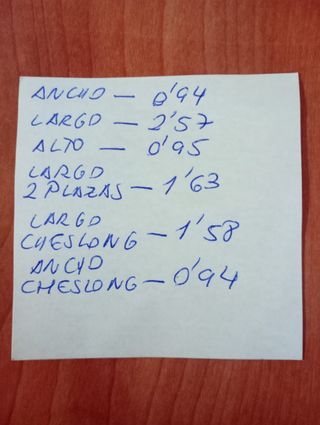 ANCHO — 0'94
LARGO — 2'57
ALTO — 0'95
LARGO
2 PLAZAS — 1'63
LARGO
CHESLONG — 1'58
ANCHO
CHESLONG — 0'94